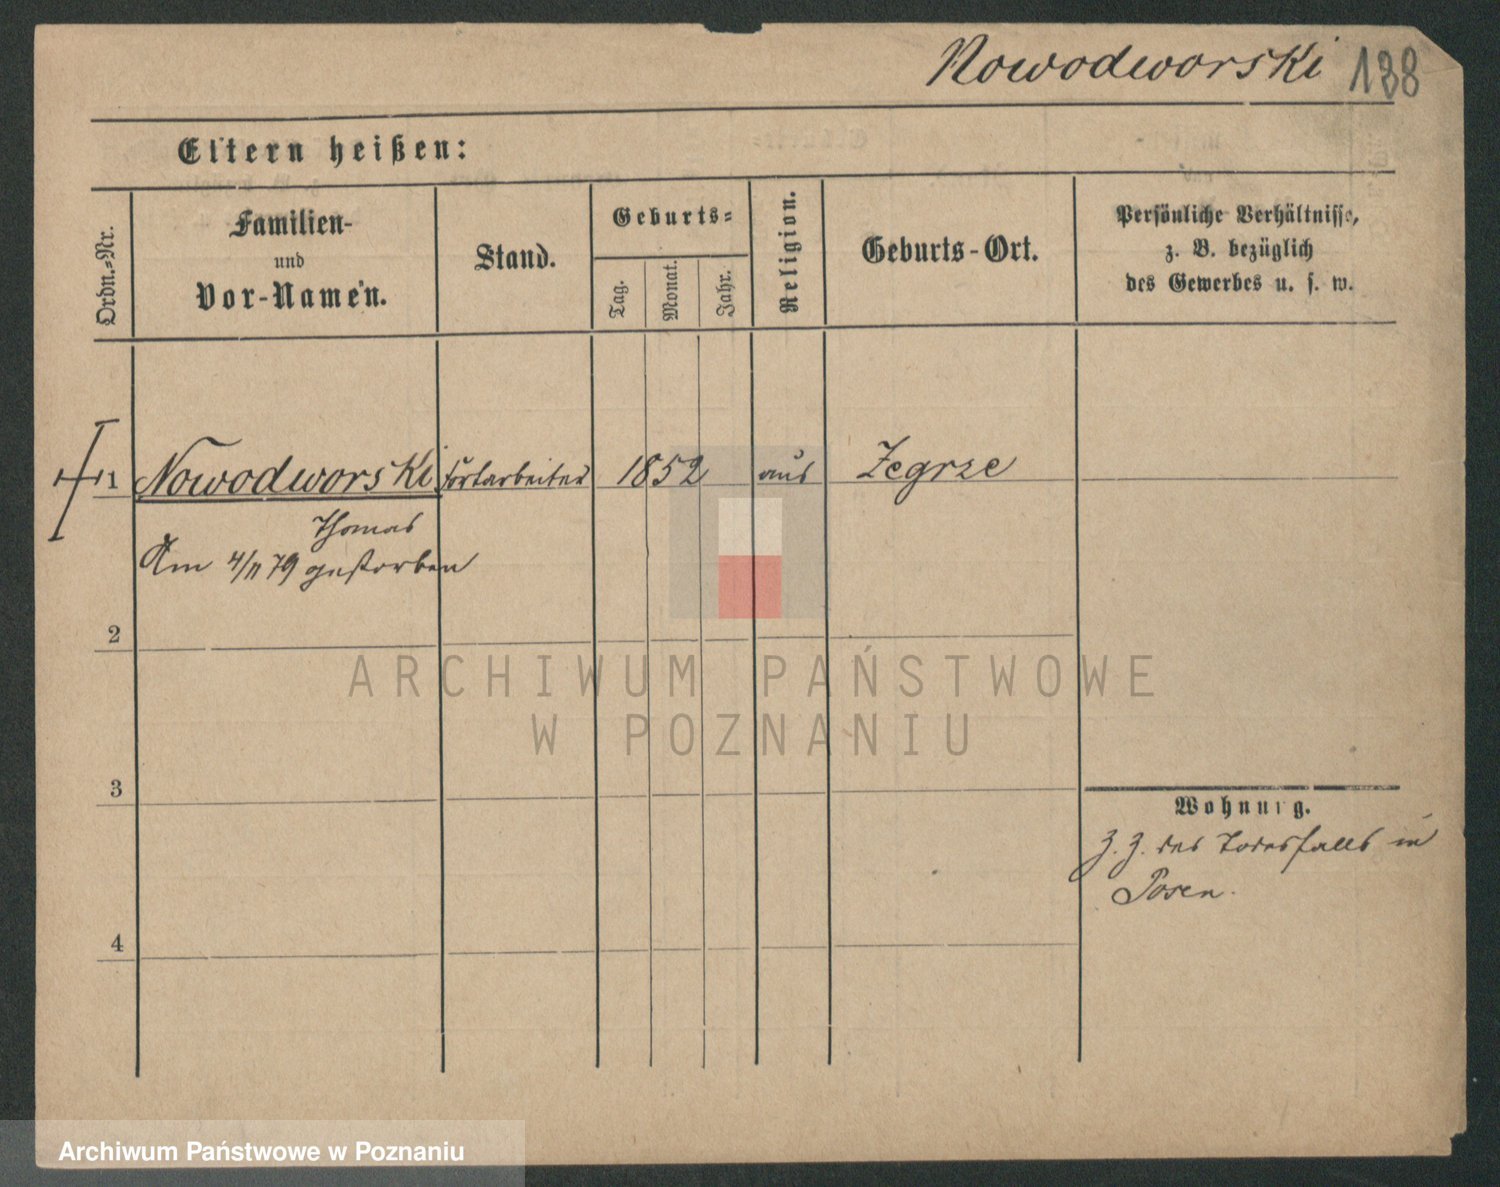 Nowodworski 138
Eltern heißen:
Ordn.-Nr.
Familien-
und
Vor-Namen.
Stand.
Geburts-
Tag.
Monat.
Jahr.
Religion.
Geburts-Ort.
Persönliche Verhältnisse,
z. B. bezüglich
des Gewerbes u. s. w.
1 Nowodworski Fortarbeiter 1852 aus Zegrze
Thomas
Am 4/11 79 gestorben
2
3
4
Wohnung.
Z. Z. des Todesfalls in
Posen.
ARCHIWUM PAŃSTWOWE
W POZNANIU
Archiwum Państwowe w Poznaniu